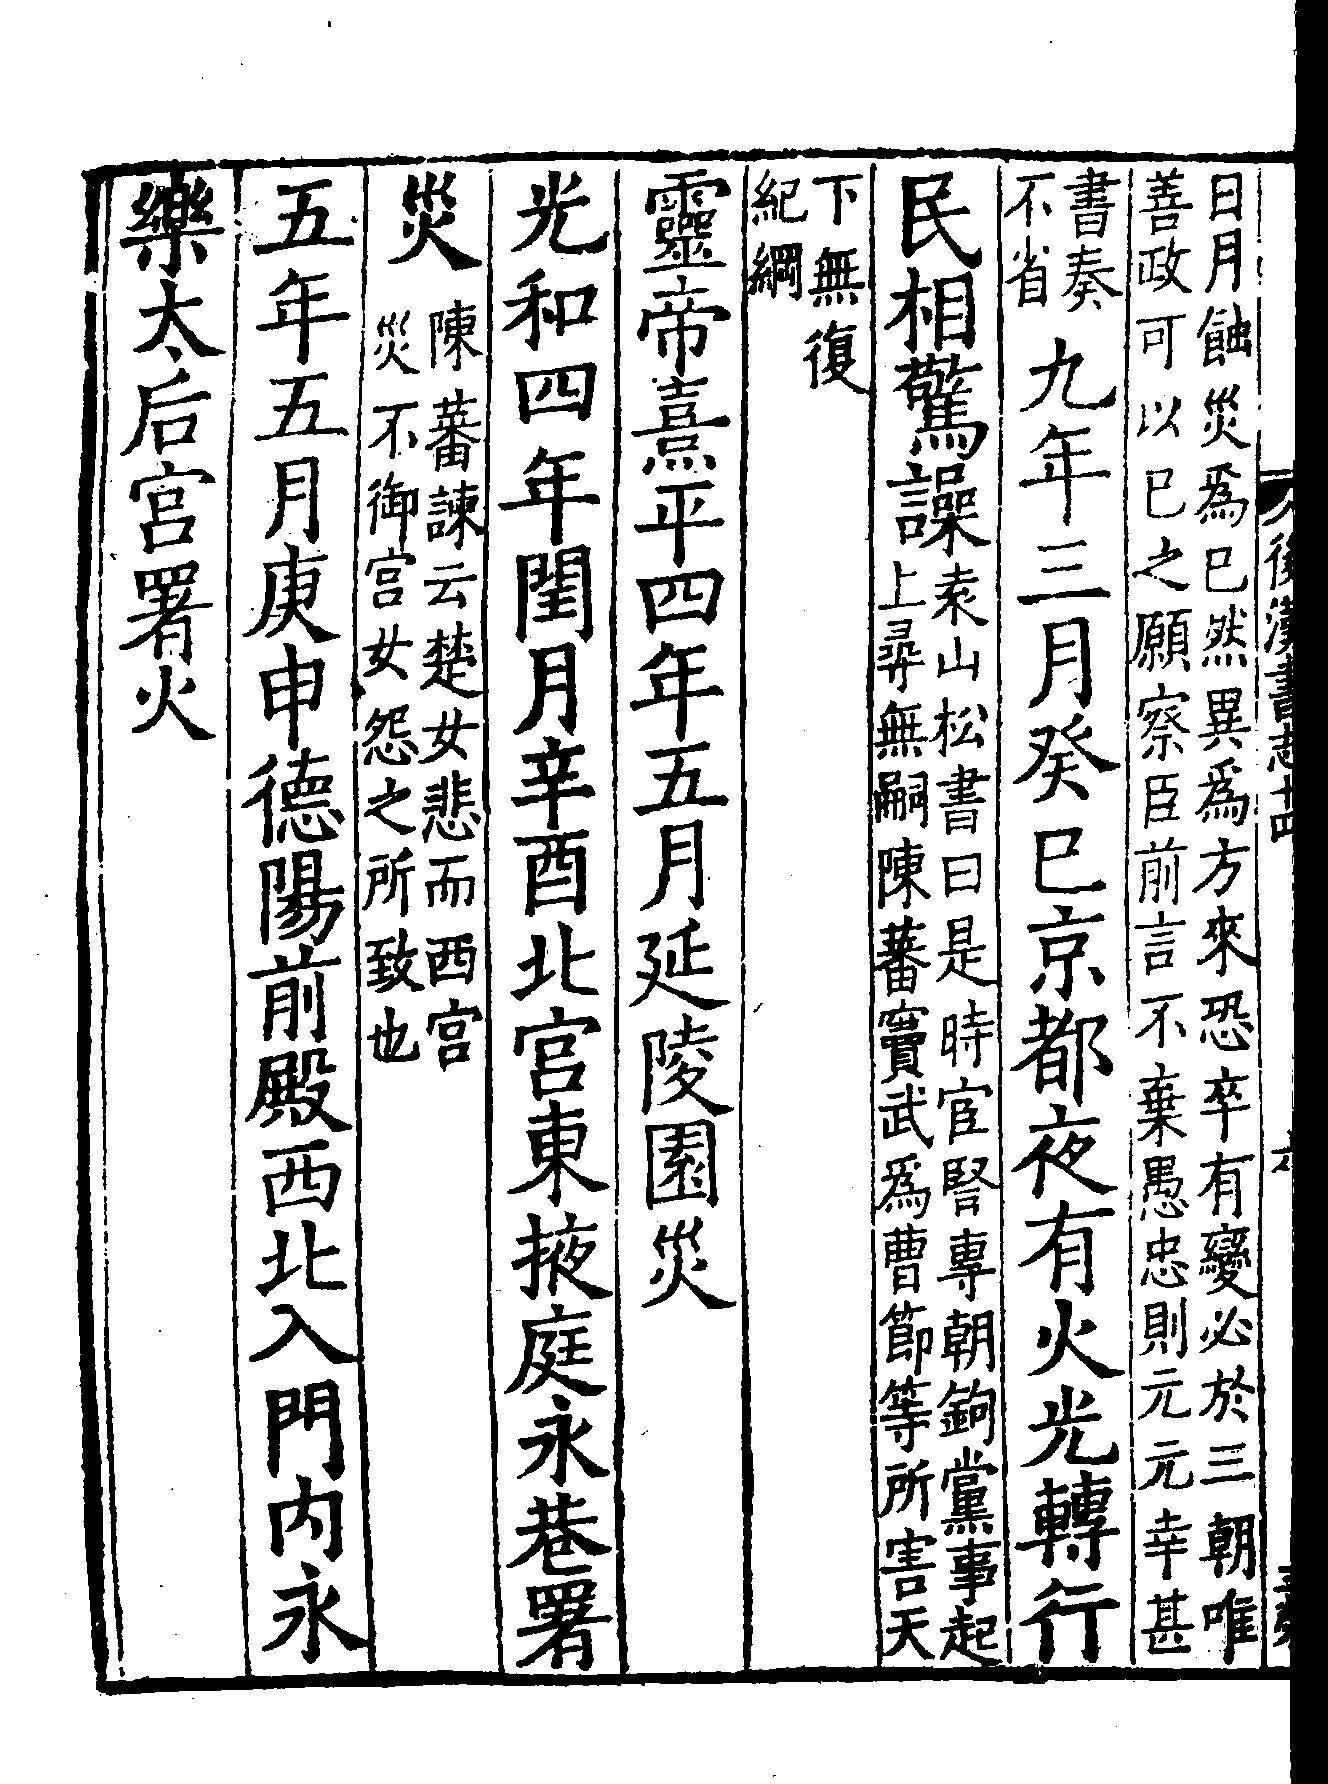 日月蝕災爲已然異爲方來恐卒有變必於三朝唯
善政可以已之願察臣前言不棄愚忠則元元幸甚
書奏
不省
九年三月癸巳京都夜有火光轉行
民相驚譟
袁山松書曰是時宦豎專朝鉤黨事起
上尋無嗣陳蕃竇武爲曹節等所害天
下無復
紀綱
靈帝熹平四年五月延陵園災
光和四年閏月辛酉北宮東掖庭永巷署
災
陳蕃諫云楚女悲而西宮
災不御宮女怨之所致也
五年五月庚申德陽前殿西北入門內永
樂太后宮署火
後漢書志十四
六